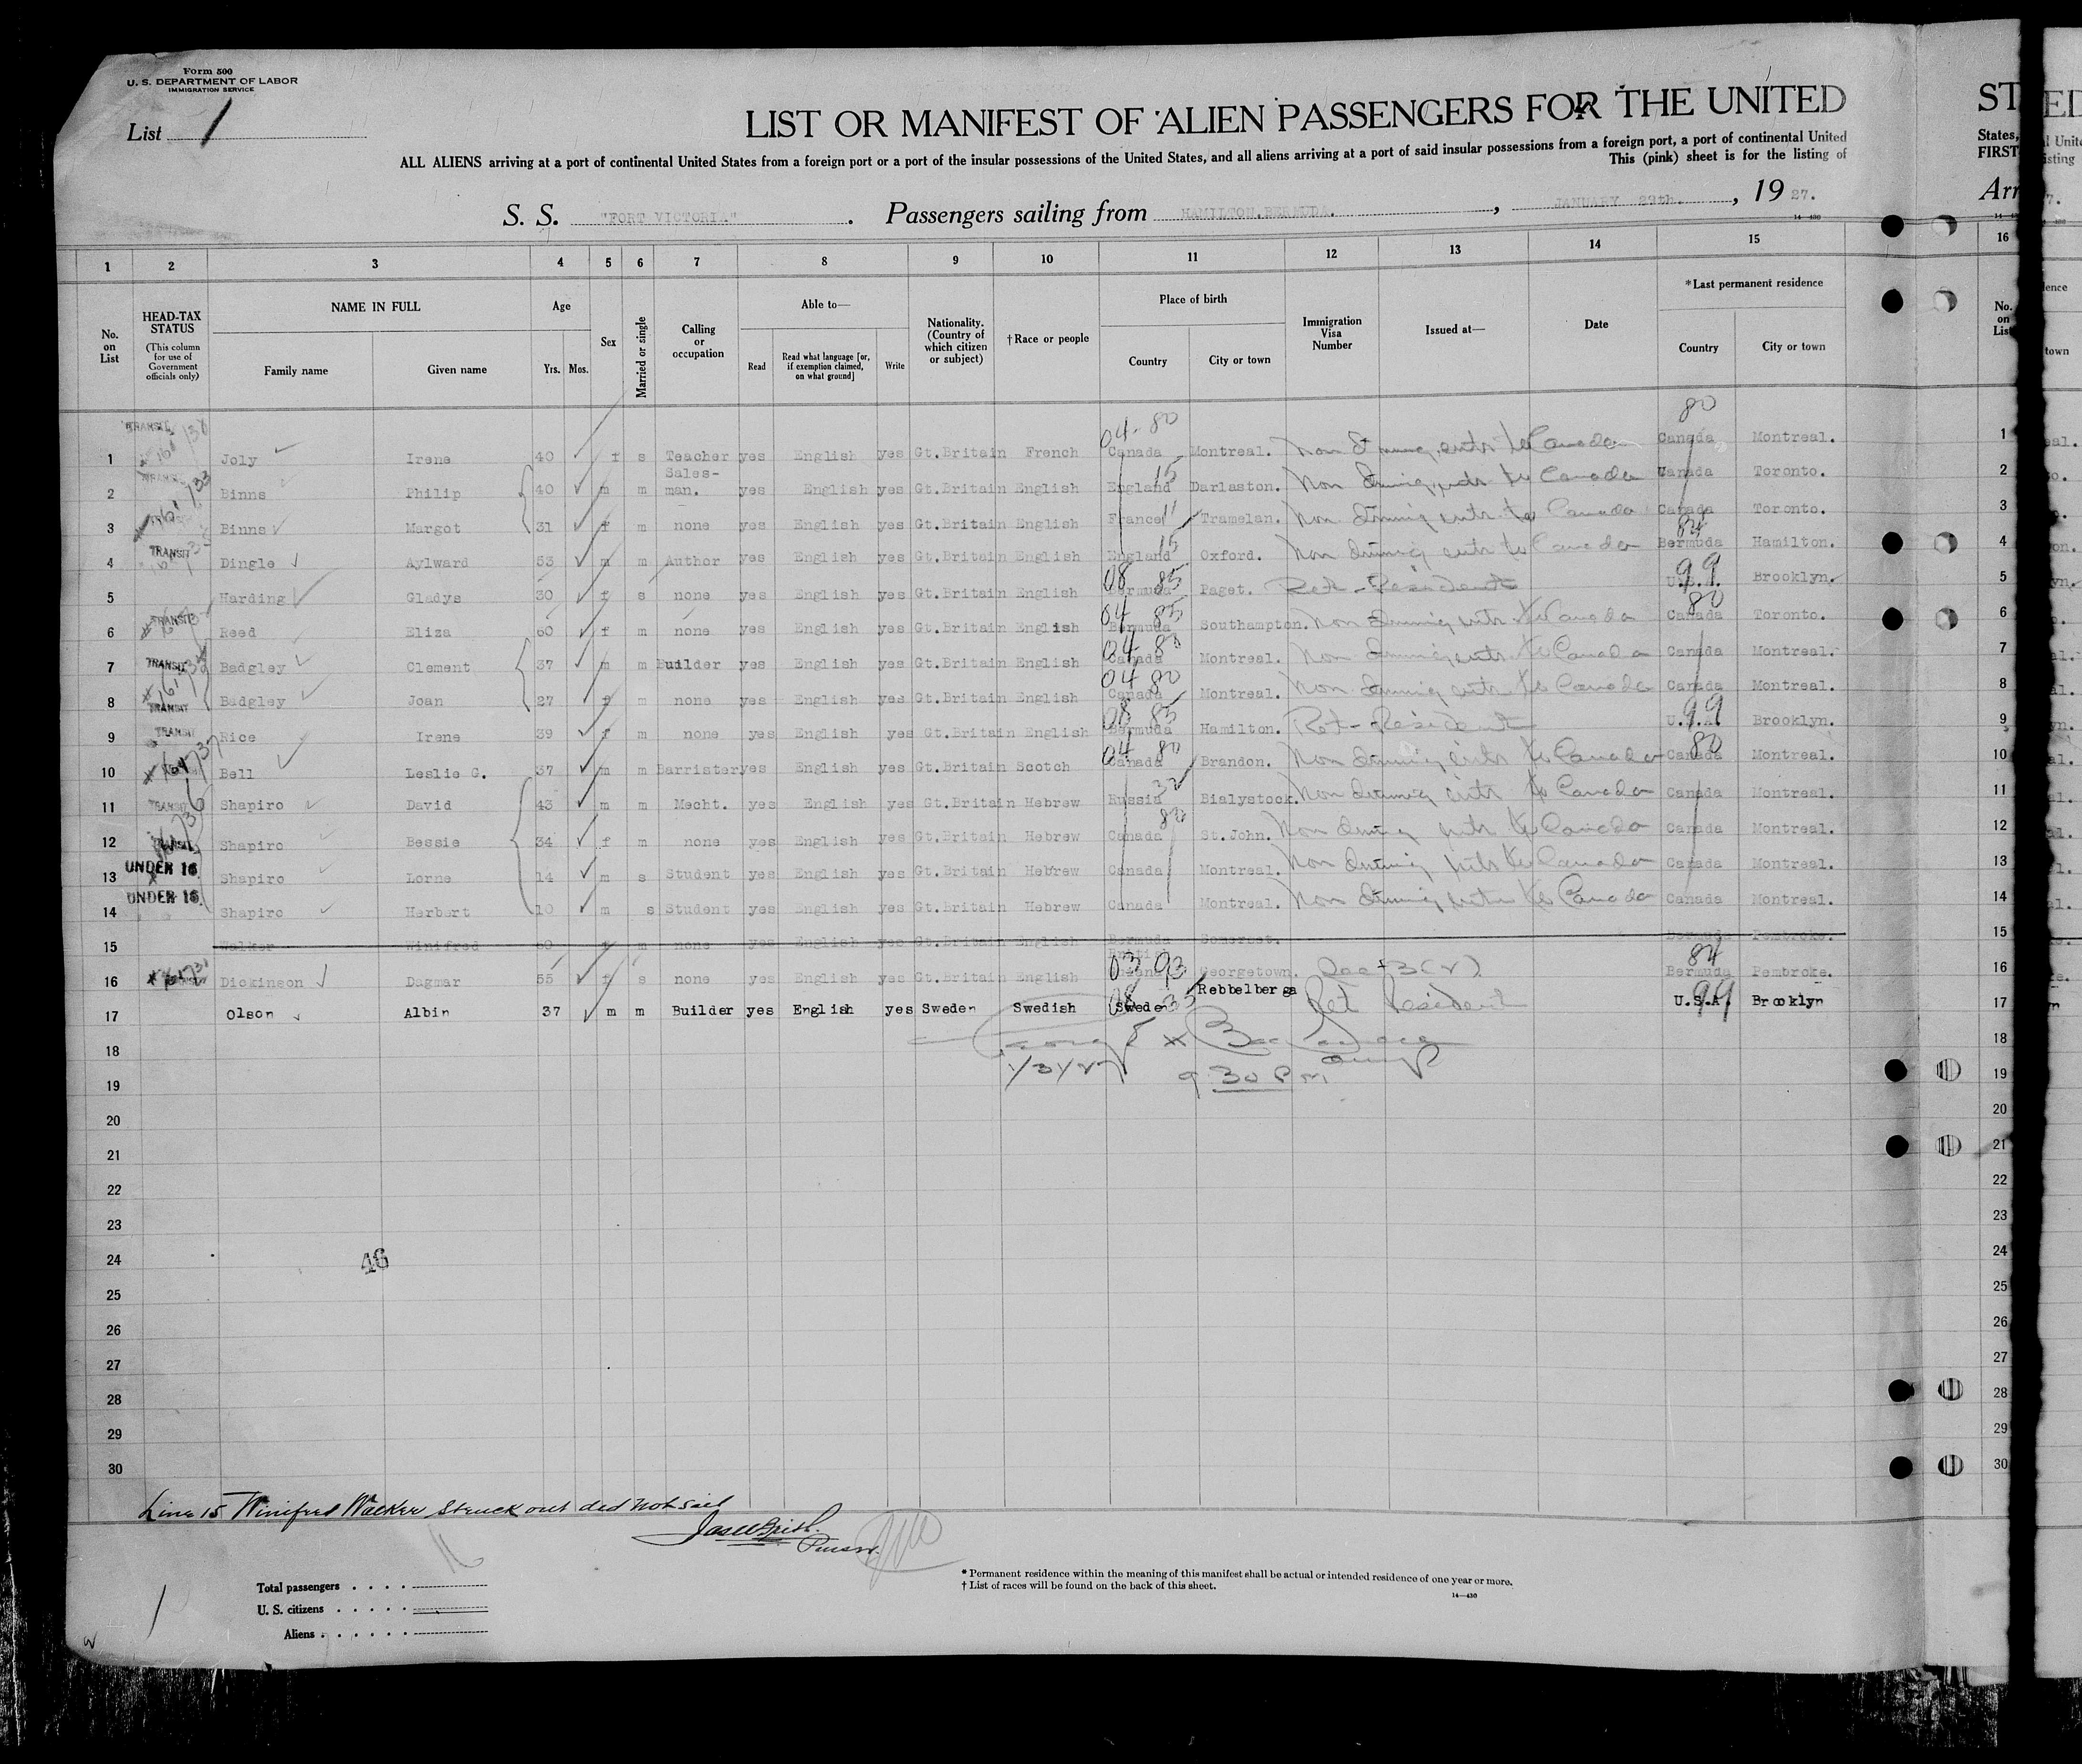 Form 500
U. S. DEPARTMENT OF LABOR
IMMIGRATION SERVICE
List 1
LIST OR MANIFEST OF ALIEN PASSENGERS FOR THE UNITED
ALL ALIENS arriving at a port of continental United States from a foreign port or a port of the insular possessions of the United States, and all aliens arriving at a port of said insular possessions from a foreign port, a port of continental United
This (pink) sheet is for the listing of
S. S. "FORT VICTORIA". Passengers sailing from HAMILTON, BERMUDA., JANUARY 29th., 1927.
14—430
1 2 3 4 5 6 7 8 9 10 11 12 13 14 15
No. on List
HEAD-TAX STATUS (This column for use of Government officials only)
NAME IN FULL Family name Given name
Age Yrs. Mos.
Sex
Married or single
Calling or occupation
Able to— Read Read what language [or, if exemption claimed, on what ground] Write
Nationality. (Country of which citizen or subject)
† Race or people
Place of birth Country City or town
Immigration Visa Number
Issued at—
Date
*Last permanent residence Country City or town
1 TRANSIT Joly Irene 40 f s Teacher yes English yes Gt.Britain French 04-80 Canada Montreal. Non Immig. entr to Canada 80 Canada Montreal.
2 TRANSIT Binns Philip 40 m m Sales-man. yes English yes Gt.Britain English 15 England Darlaston. Non Immig. entr to Canada Canada Toronto.
3 Binns Margot 31 f m none yes English yes Gt.Britain English France 11 Tramelan. Non Immig entr to Canada Canada Toronto.
4 TRANSIT Dingle Aylward 53 m m Author yes English yes Gt.Britain English 15 England Oxford. Non Immig entr to Canada 84 Bermuda Hamilton.
5 Harding Gladys 30 f s none yes English yes Gt.Britain English 08 85 Bermuda Paget. Ret-Resident 99 U.S.A. Brooklyn.
6 TRANSIT Reed Eliza 60 f m none yes English yes Gt.Britain English 04 85 Bermuda Southampton. Non Immig entr to Canada 80 Canada Toronto.
7 TRANSIT Badgley Clement 37 m m Builder yes English yes Gt.Britain English 04 80 Canada Montreal. Non Immig entr to Canada Canada Montreal.
8 TRANSIT Badgley Joan 27 f m none yes English yes Gt.Britain English 04 80 Canada Montreal. Non Immig entr to Canada Canada Montreal.
9 TRANSIT Rice Irene 39 f m none yes English yes Gt.Britain English 08 85 Bermuda Hamilton. Ret-Resident 99 U.S.A. Brooklyn.
10 Bell Leslie G. 37 m m Barrister yes English yes Gt.Britain Scotch 04 80 Canada Brandon. Non Immig entr to Canada 80 Canada Montreal.
11 TRANSIT Shapiro David 43 m m Mecht. yes English yes Gt.Britain Hebrew 32 Russia Bialystock. Non Immig entr to Canada Canada Montreal.
12 Shapiro Bessie 34 f m none yes English yes Gt.Britain Hebrew 80 Canada St.John. Non Immig entr to Canada Canada Montreal.
13 UNDER 16 Shapiro Lorne 14 m s Student yes English yes Gt.Britain Hebrew Canada Montreal. Non Immig entr to Canada Canada Montreal.
14 UNDER 16 Shapiro Herbert 10 m s Student yes English yes Gt.Britain Hebrew Canada Montreal. Non Immig entr to Canada Canada Montreal.
15 Walker Winifred 60 f m none yes English yes Gt.Britain English Bermuda Somerset. Bermuda Pembroke.
16 Dickinson Dagmar 55 f s none yes English yes Gt.Britain English British Guiana 03 93 Georgetown. Sec 3(2) 84 Bermuda Pembroke.
17 Olson Albin 37 m m Builder yes English yes Sweden Swedish Sweden Rebbelberga Ret Resident 99 U.S.A. Brooklyn
18
19 1/31/27 9 30 P.m.
20
21
22
23
24 46
25
26
27
28
29
30
Line 15 Winifred Walker struck out did not sail
Purser.
Total passengers
U. S. citizens
Aliens
* Permanent residence within the meaning of this manifest shall be actual or intended residence of one year or more.
† List of races will be found on the back of this sheet.
14—430
ST
States,
FIRST
Arr
16
No. on List
1
2
3
4
5
6
7
8
9
10
11
12
13
14
15
16
17
18
19
20
21
22
23
24
25
26
27
28
29
30